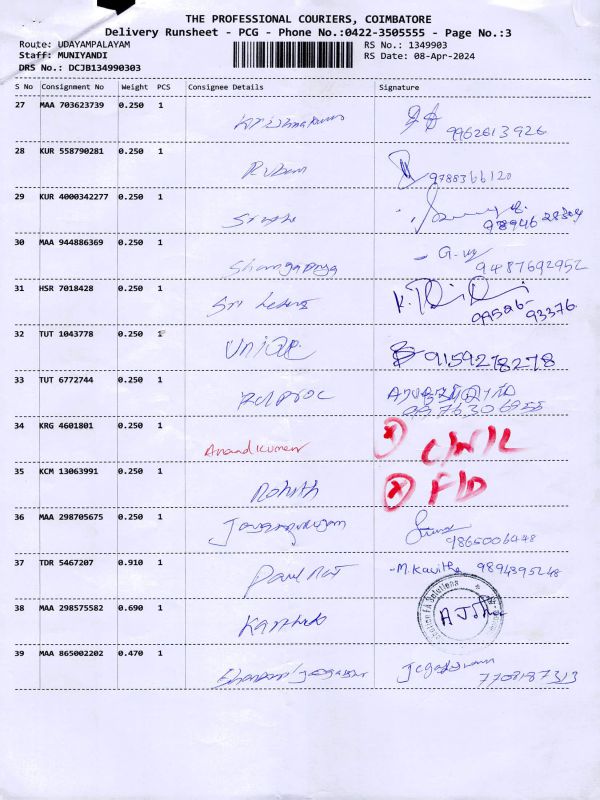 THE PROFESSIONAL COURIERS, COIMBATORE
Delivery Runsheet - PCG - Phone No.:0422-3505555 - Page No.:3
Route: UDAYAMPALAYAM RS No.: 1349903
Staff: MUNIYANDI RS Date: 08-Apr-2024
DRS No.: DCJB134990303
S No Consignment No Weight PCS Consignee Details Signature
27 MAA 703623739 0.250 1
9962613926
28 KUR 558790281 0.250 1 Ruban
9788366120
29 KUR 4000342277 0.250 1
30 MAA 944886369 0.250 1 G.
9487692952
31 HSR 7018428 0.250 1 Sri K.
99526-
93376
32 TUT 1043778 0.250 1 UNIQE 9159278278
33 TUT 6772744 0.250 1
9976306955
34 KRG 4601801 0.250 1 Anandkumar
35 KCM 13063991 0.250 1 Rohith F/D
36 MAA 298705675 0.250 1
9865006448
37 TDR 5467207 0.910 1 Paul M. Kavitha 9894395248
38 MAA 298575582 0.690 1 Karthik
39 MAA 865002202 0.470 1
7708187313